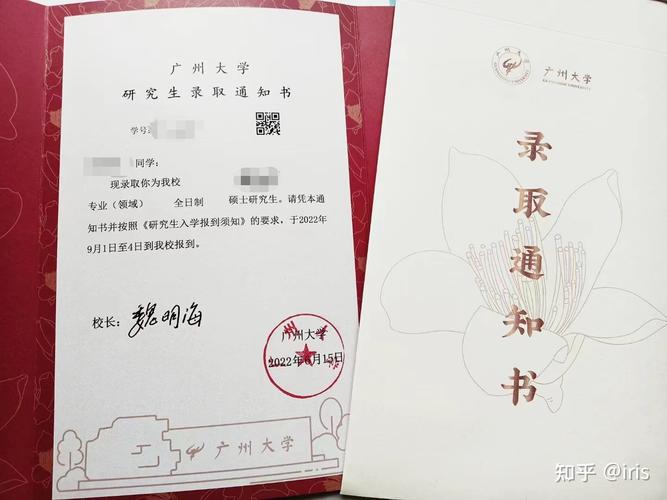 广州大学
研究生录取通知书
学号:
同学:
现录取你为我校
专业（领域） 全日制 硕士研究生。请凭本通
知书并按照《研究生入学报到须知》的要求，于2022年
9月1日至4日到我校报到。
校长: 魏明海
广州大学
2022年6月15日
广州大学
广州大学
录取通知书
知乎 @iris